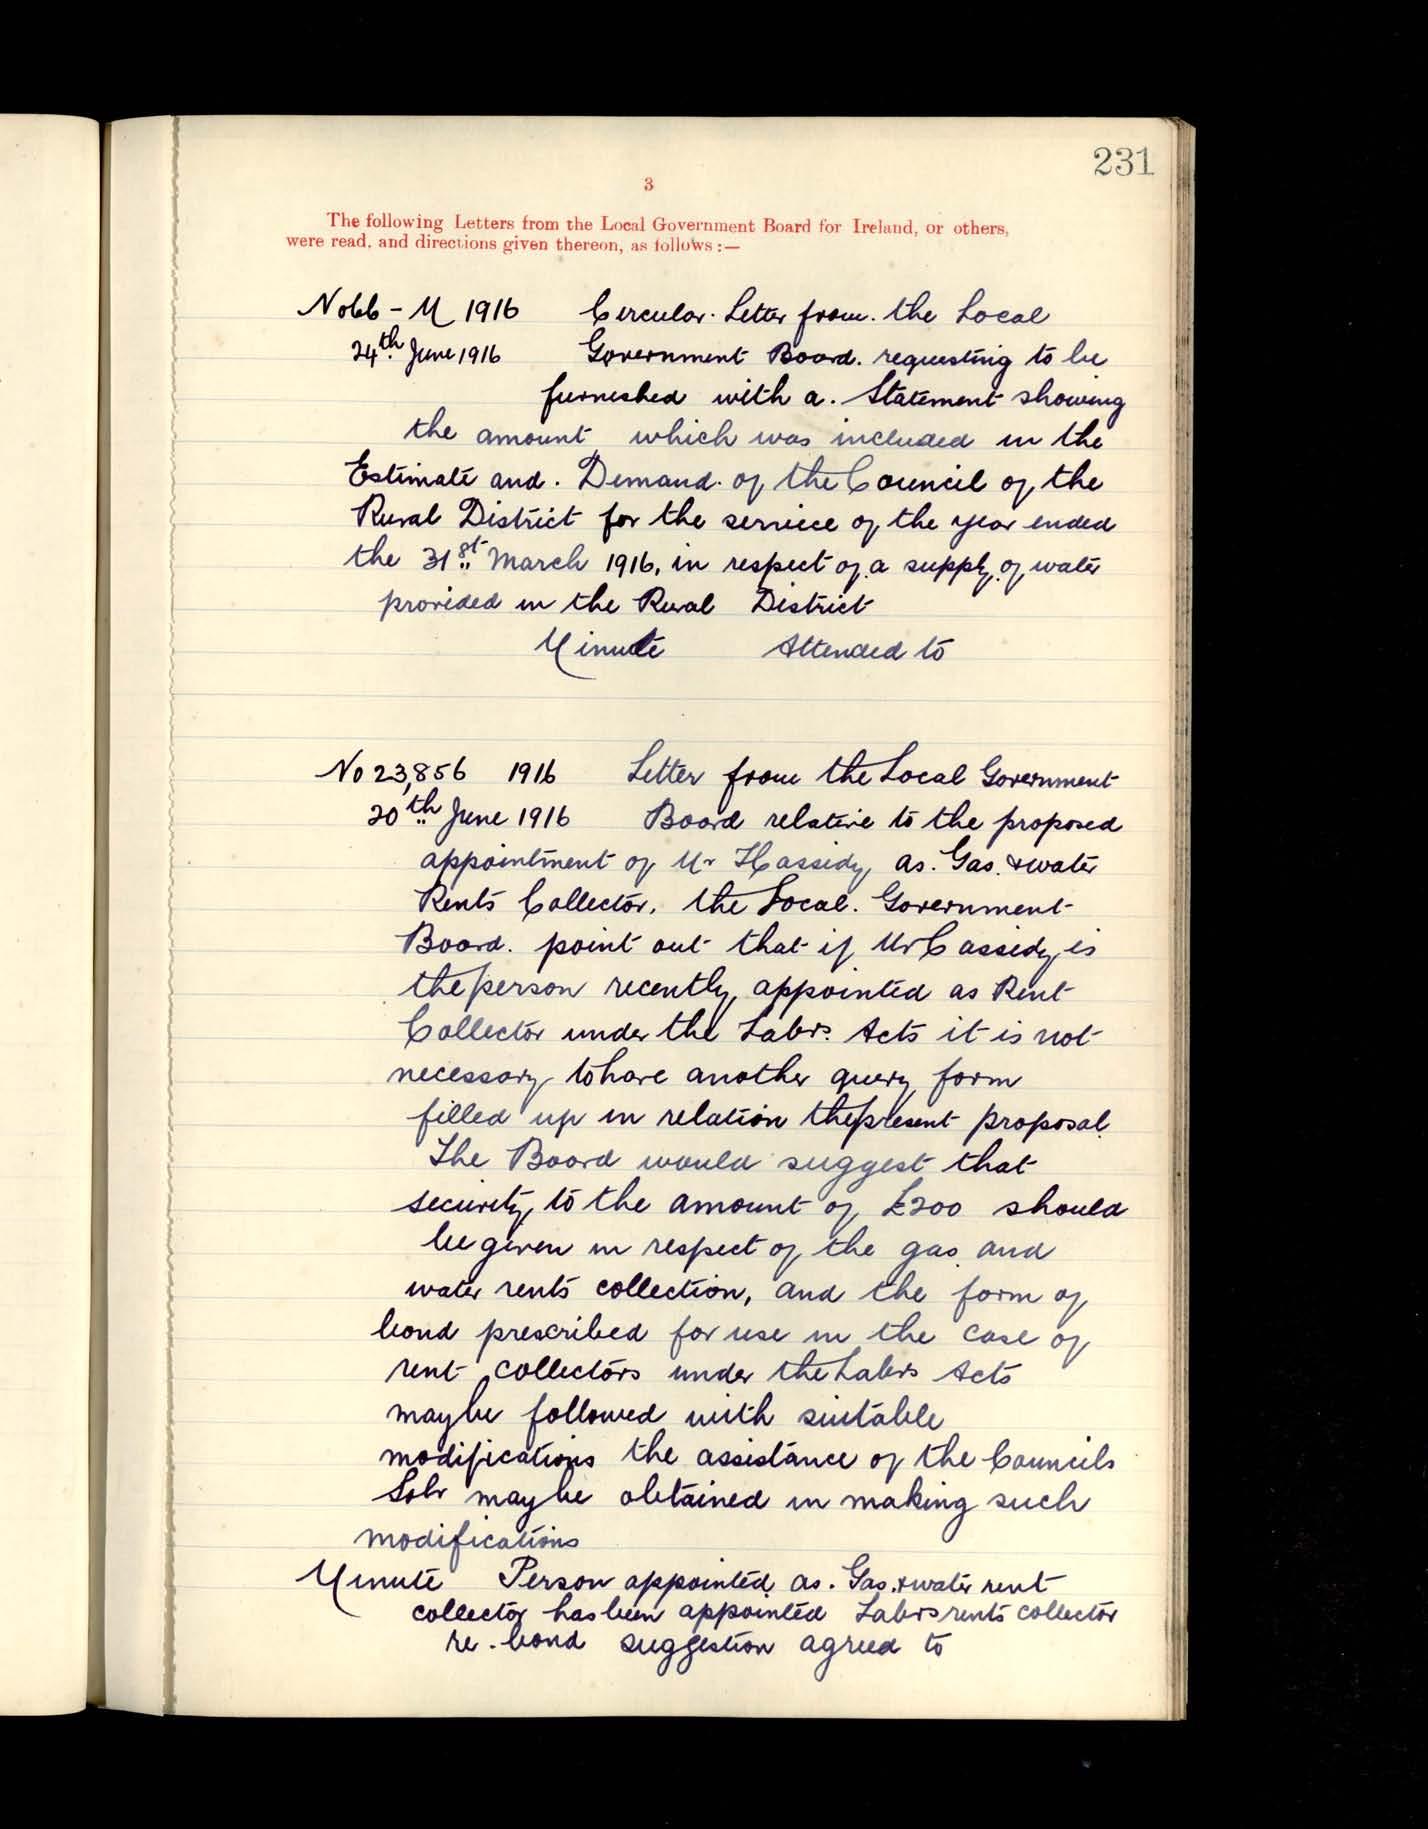 231
3
The following Letters from the Local Government Board for Ireland, or others,
were read, and directions given thereon, as follows :—
No 66 - M 1916 Circular. Letter from. the Local
24th June 1916 Government Board. requesting to be
furnished with a. Statement showing
the amount which was included in the
Estimate and. Demand. of the Council of the
Rural District for the service of the year ended
the 31st March 1916, in respect of a supply of water
provided in the Rural District
Minute Attended to
No 23,856 1916 Letter from the Local Government
20th June 1916 Board relative to the proposed
appointment of Mr Cassidy as. Gas. & water
Rents Collector. the Local. Government
Board. point out that if Mr Cassidy is
the person recently appointed as Rent
Collector under the Labrs. Acts it is not
necessary to have another query form
filled up in relation the present proposal.
The Board would suggest that
security to the amount of £200 should
be given in respect of the gas and
water rents collection, and the form of
bond prescribed for use in the case of
rent collectors under the Labrs Acts
may be followed with suitable
modifications the assistance of the Councils
Solr may be obtained in making such
modifications
Minute Person appointed as. Gas. & water rent
collector has been appointed Labrs rents collector
re. bond suggestion agreed to